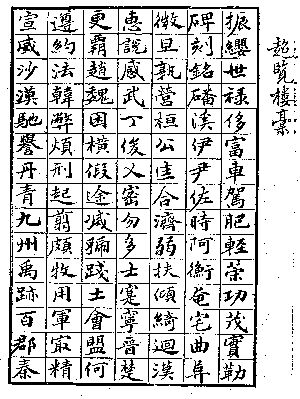 超覽樓稾
振纓世祿侈富車駕肥輕策功茂實勒
碑刻銘磻溪伊尹佐時阿衡奄宅曲阜
微旦孰營桓公匡合濟弱扶傾綺迴漢
惠說感武丁俊乂密勿多士寔寧晉楚
更霸趙魏困橫假途滅虢踐土會盟何
遵約法韓弊煩刑起翦頗牧用軍冣精
宣威沙漠馳譽丹青九州禹跡百郡秦